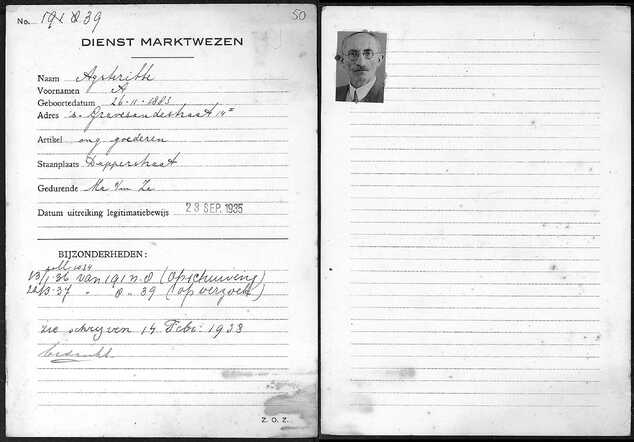 No. 191 O 39
50
DIENST MARKTWEZEN
Naam Aysteribbe
Voornamen A
Geboortedatum 26-11-1883
Adres 's-Gravesandestraat 14
Artikel ong goederen
Staanplaats Dapperstraat
Gedurende Ma t/m Za
Datum uitreiking legitimatiebewijs 23 SEP. 1935
BIJZONDERHEDEN:
1-36 van 191 n. O (Opschuiving)
-3-37 " O " 39 (op verzoek)
zie schrijven 14 Febr: 1938
Z. O. Z.